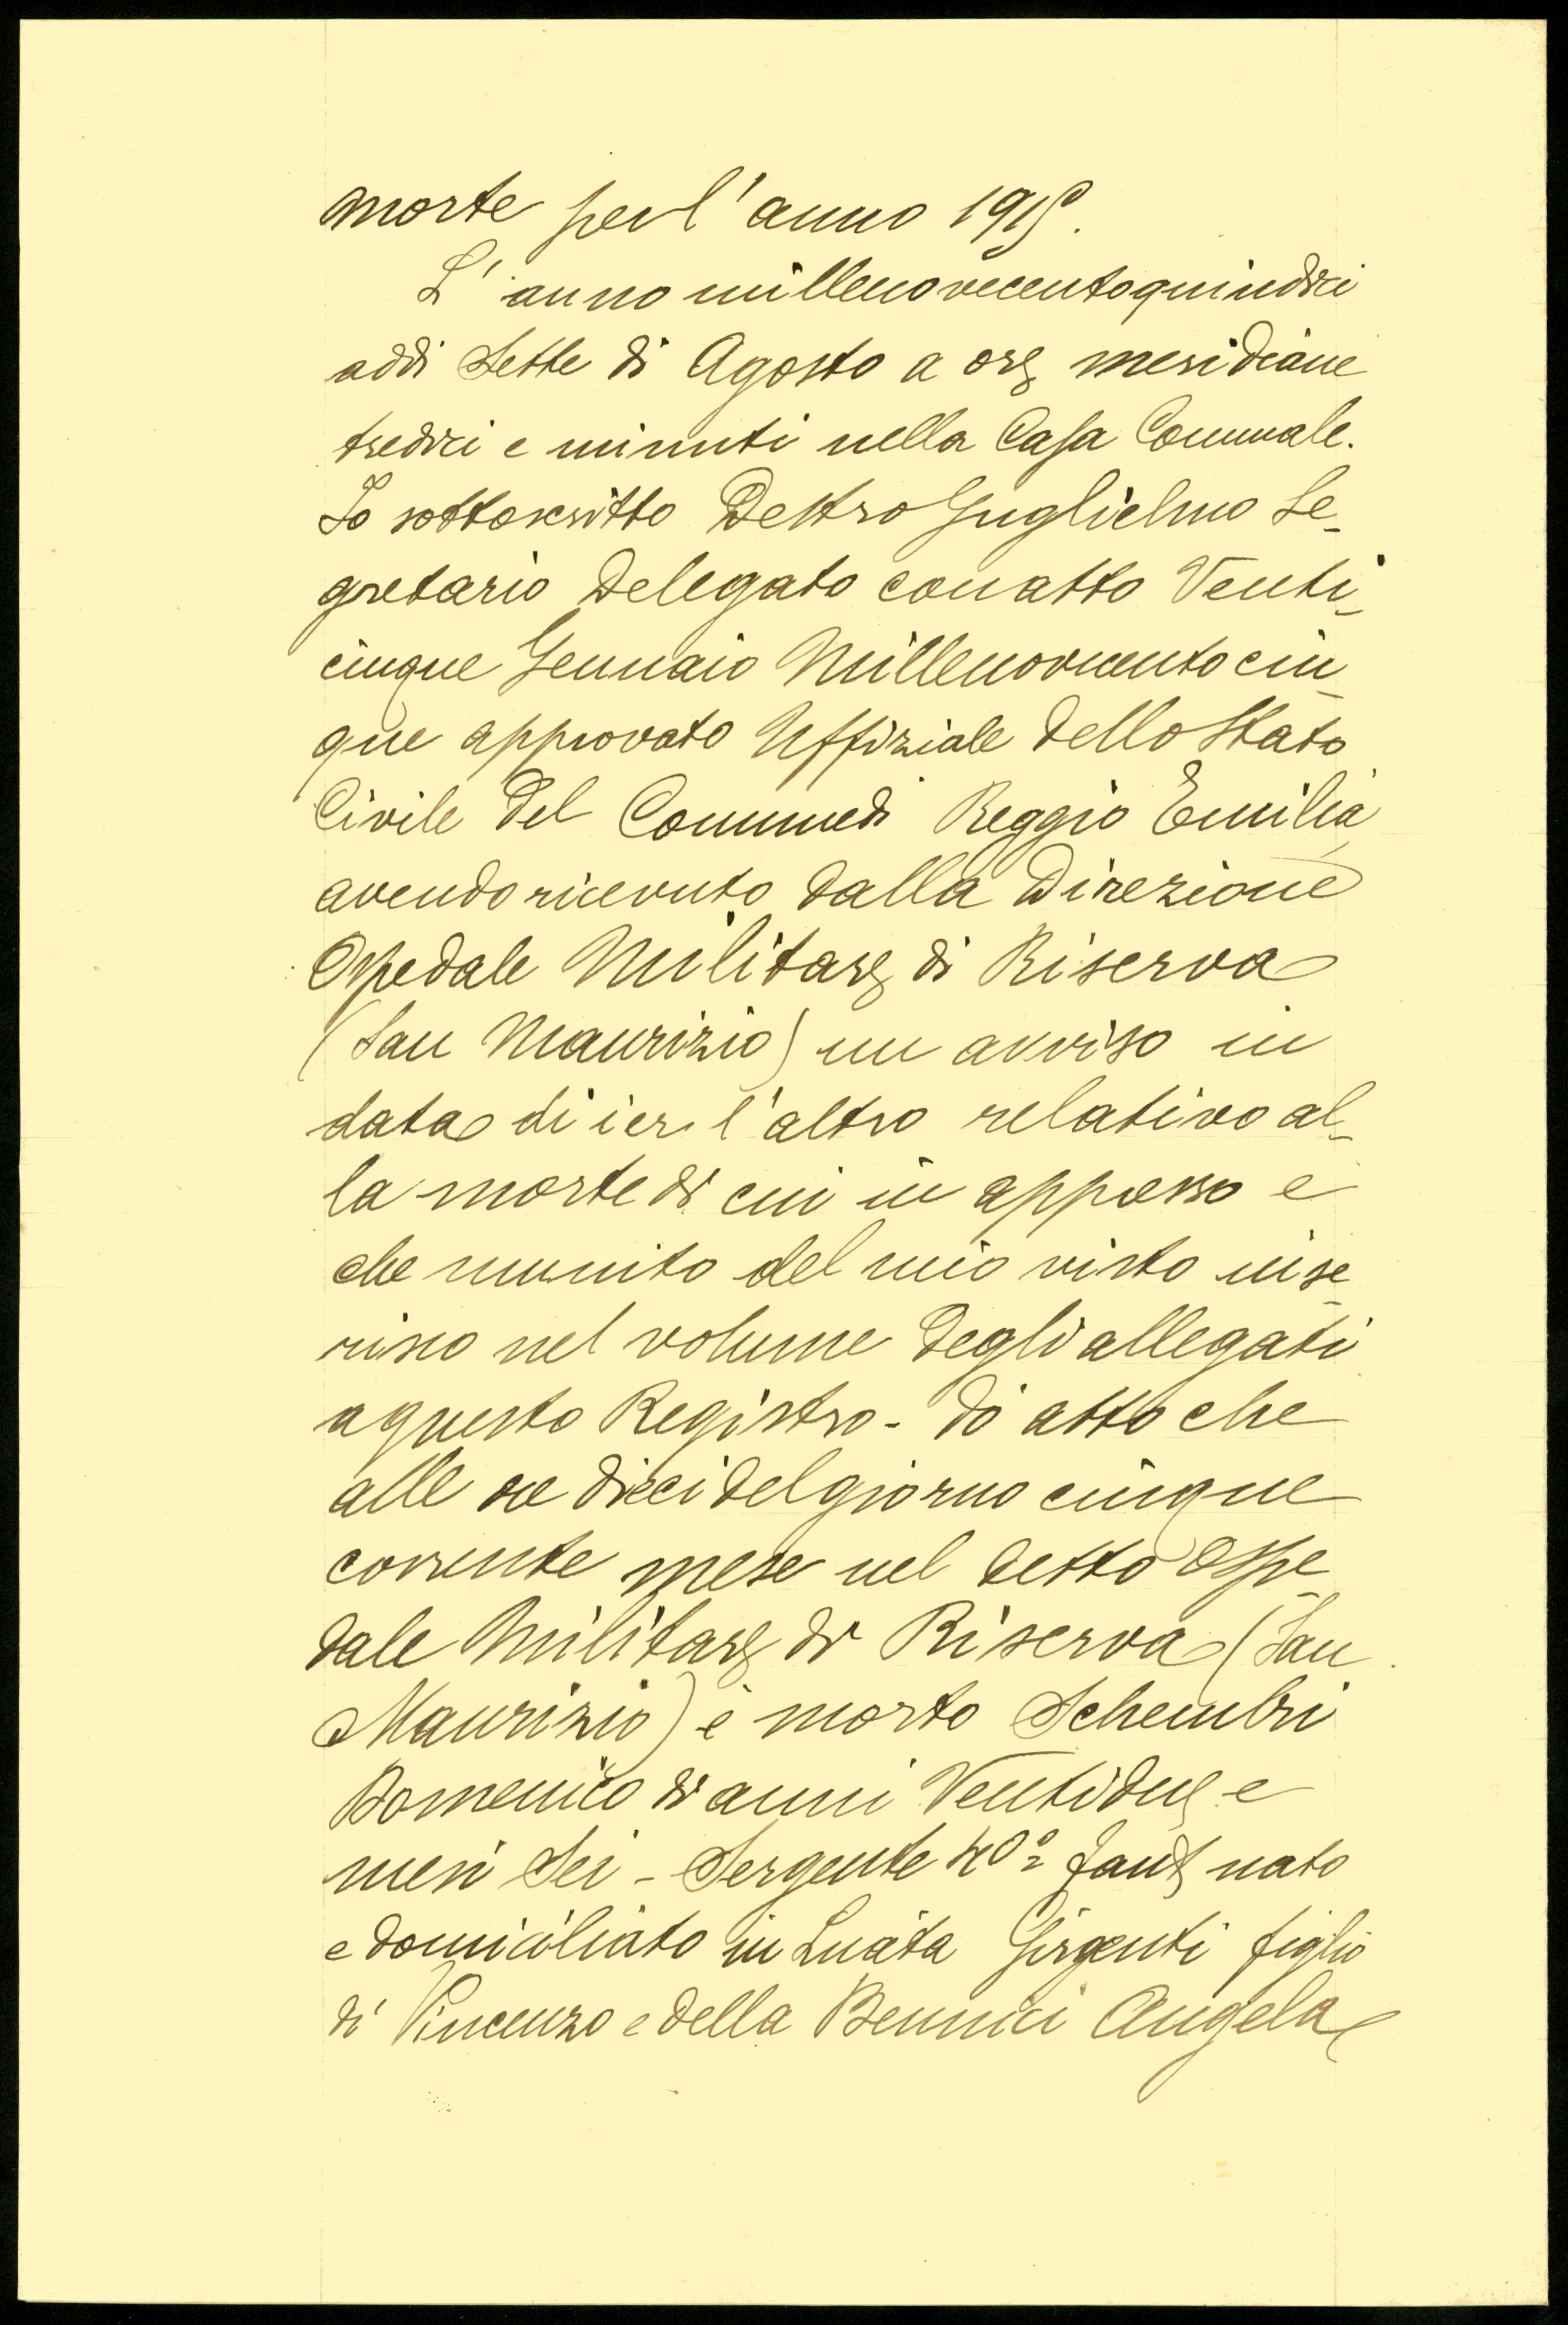 morte per l'anno 1915.
L'anno millenovecentoquindici
addi Sette di Agosto a ore meridiane
tredici e minuti nella Casa Comunale.
Io sottoscritto Destro Guglielmo Se-
gretario Delegato con atto Venti-
cinque Gennaio Millenovecento cin-
que approvato Uffiziale dello Stato
Civile del Comune di Reggio Emilia
avendo ricevuto dalla Direzione
Ospedale Militare di Riserva
(San Maurizio) un avviso in
data di ier l'altro relativo al-
la morte di cui in appresso e
che munito del mio visto inse-
risco nel volume degli allegati
a questo Registro - do atto che
alle ore dieci del giorno cinque
corrente mese nel detto Ospe-
dale Militare di Riserva (San
Maurizio) è morto Schembri
Domenico di anni Ventidue e
mesi Sei - Sergente fant nato
e domiciliato in Girgenti figlio
di Vincenzo e della Bennici Angela